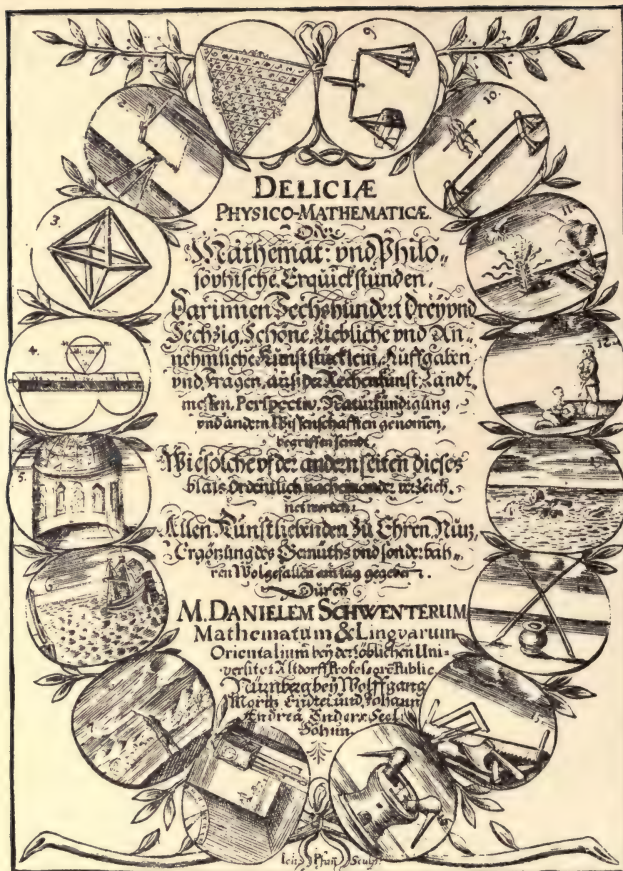 DELICIÆ
PHYSICO-MATHEMATICÆ.
Oder
Mathemat: vnd Philo„
sophische Erquickstunden,
Darinnen Sechshundert Drey vnd
Sechzig, Schöne, Liebliche vnd An„
nehmliche Kunststücklein, Auffgaben
vnd Fragen, auß der Rechenkunst, Landt„
messen, Perspectiv, Naturkündigung
vnd andern Wissenschafften genomen,
begriffen seindt,
Wie solche vf der andern seiten dieses
blats Ordentlich nacheinander verzeich„
net worden:
Allen Kunstliebenden zu Ehren, Nutz,
Ergötzung des Gemüths vnd sonderbah„
ren Wolgefallen am tag gegeben.
Durch
M. DANIELEM SCHWENTERUM
Mathematum & Lingvarum
Orientalium beÿ der löblichen Uni„
versitet Altdorff Professore Public.
Nürnberg beÿ Wolffgang
Moritz Endter und Johann
Andreä Enders Seel.
Söhnn.
9.
10.
3.
11.
4.
12.
5.
Sculps.